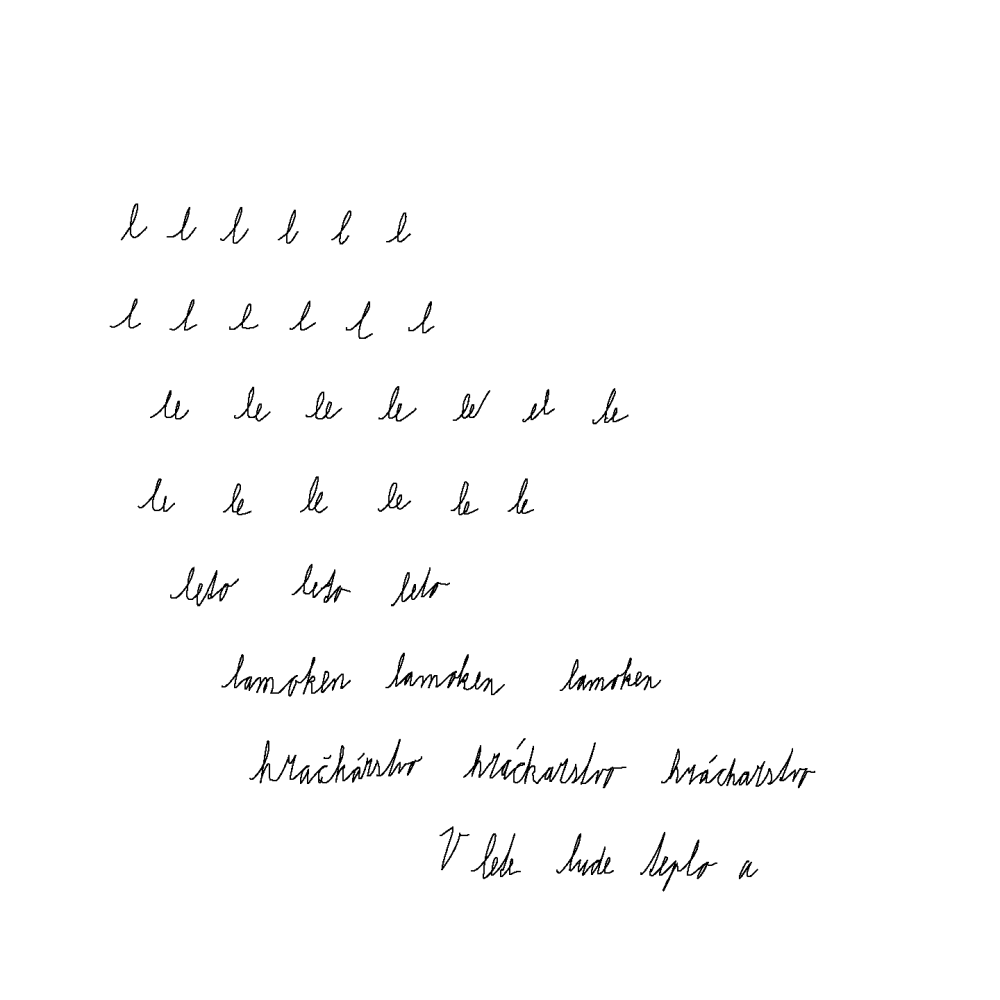 l l l l l l
l l l l l l
le le le le le el le
le le le le le le
leto leto leto
lamoken lamoken lamoken
hračkárstvo hráčkarstvo hráčkarstvo
V lete bude teplo a